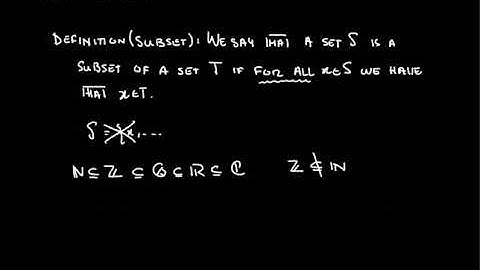 DEFINITION (SUBSET): WE SAY THAT A SET S IS A
SUBSET OF A SET T IF FOR ALL x∈S WE HAVE
THAT x∈T.
S = {x, ....
ℕ ⊆ ℤ ⊆ ℚ ⊆ ℝ ⊆ ℂ ℤ ⊈ ℕ